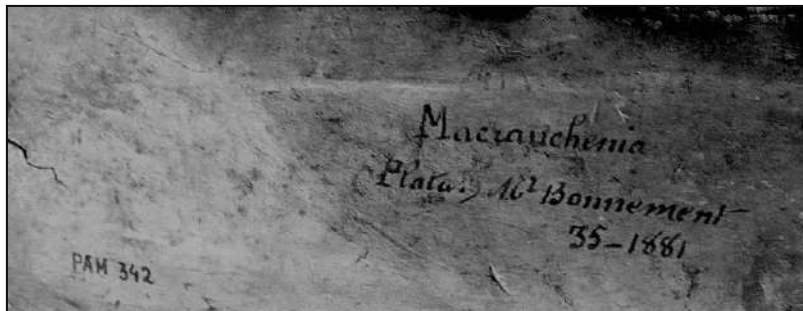 Macrauchenia
Plata.) Mr Bonnement
35-1881
PAM 342